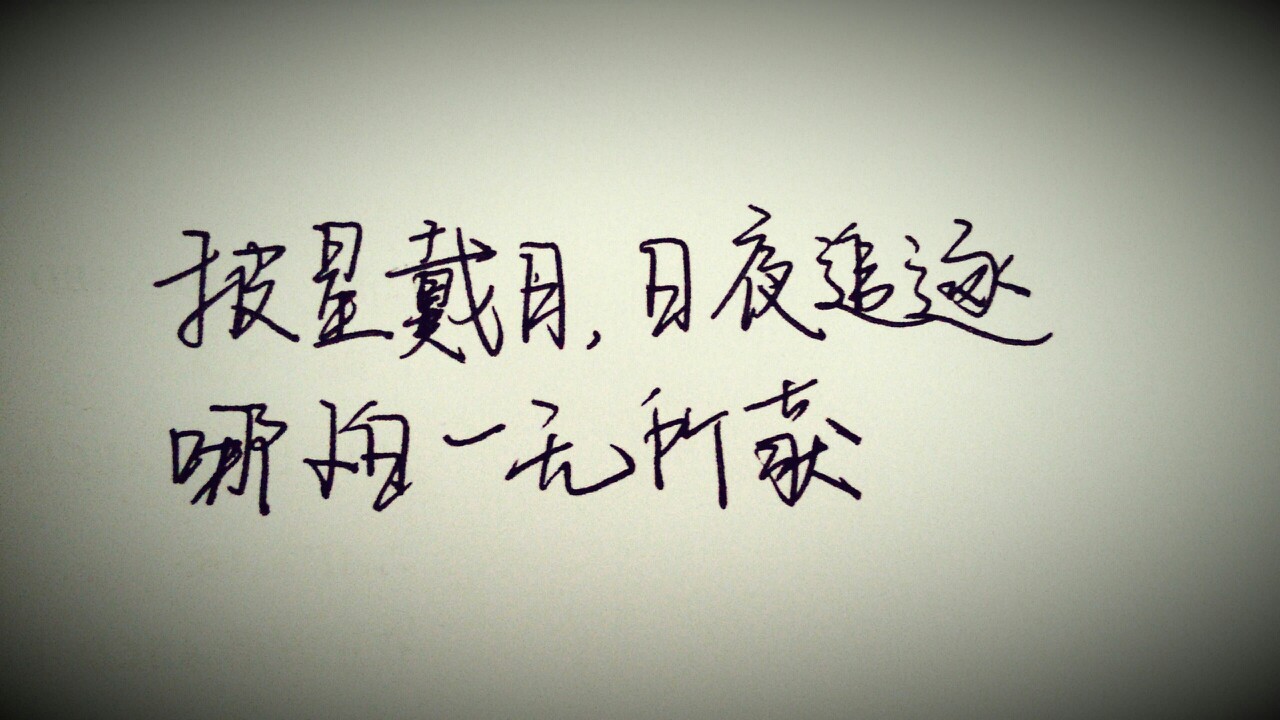 披星戴月,日夜追逐
哪怕一无所获